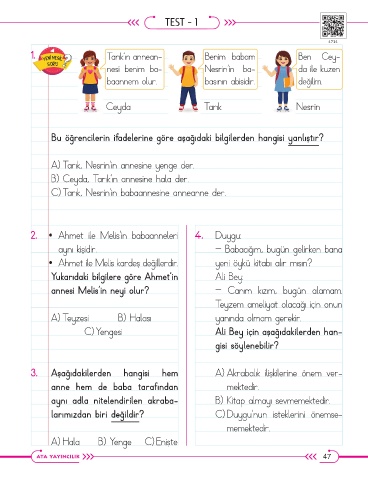 TEST - 1
4714
1.
YENİ NESİL
SORU
Tarık'ın annean-
nesi benim ba-
baannem olur.
Ceyda
Benim babam
Nesrin'in ba-
basının abisidir.
Tarık
Ben Cey-
da ile kuzen
değilim.
Nesrin
Bu öğrencilerin ifadelerine göre aşağıdaki bilgilerden hangisi yanlıştır?
A) Tarık, Nesrin'in annesine yenge der.
B) Ceyda, Tarık'ın annesine hala der.
C) Tarık, Nesrin'in babaannesine anneanne der.
2. • Ahmet ile Melis'in babaanneleri
aynı kişidir.
• Ahmet ile Melis kardeş değillerdir.
Yukarıdaki bilgilere göre Ahmet'in
annesi Melis'in neyi olur?
A) Teyzesi B) Halası
C) Yengesi
3. Aşağıdakilerden hangisi hem
anne hem de baba tarafından
aynı adla nitelendirilen akraba-
larımızdan biri değildir?
A) Hala B) Yenge C) Enişte
4. Duygu:
– Babacığım, bugün gelirken bana
yeni öykü kitabı alır mısın?
Ali Bey:
– Canım kızım, bugün alamam.
Teyzem ameliyat olacağı için onun
yanında olmam gerekir.
Ali Bey için aşağıdakilerden han-
gisi söylenebilir?
A) Akrabalık ilişkilerine önem ver-
mektedir.
B) Kitap almayı sevmemektedir.
C) Duygu'nun isteklerini önemse-
memektedir.
ATA YAYINCILIK
47